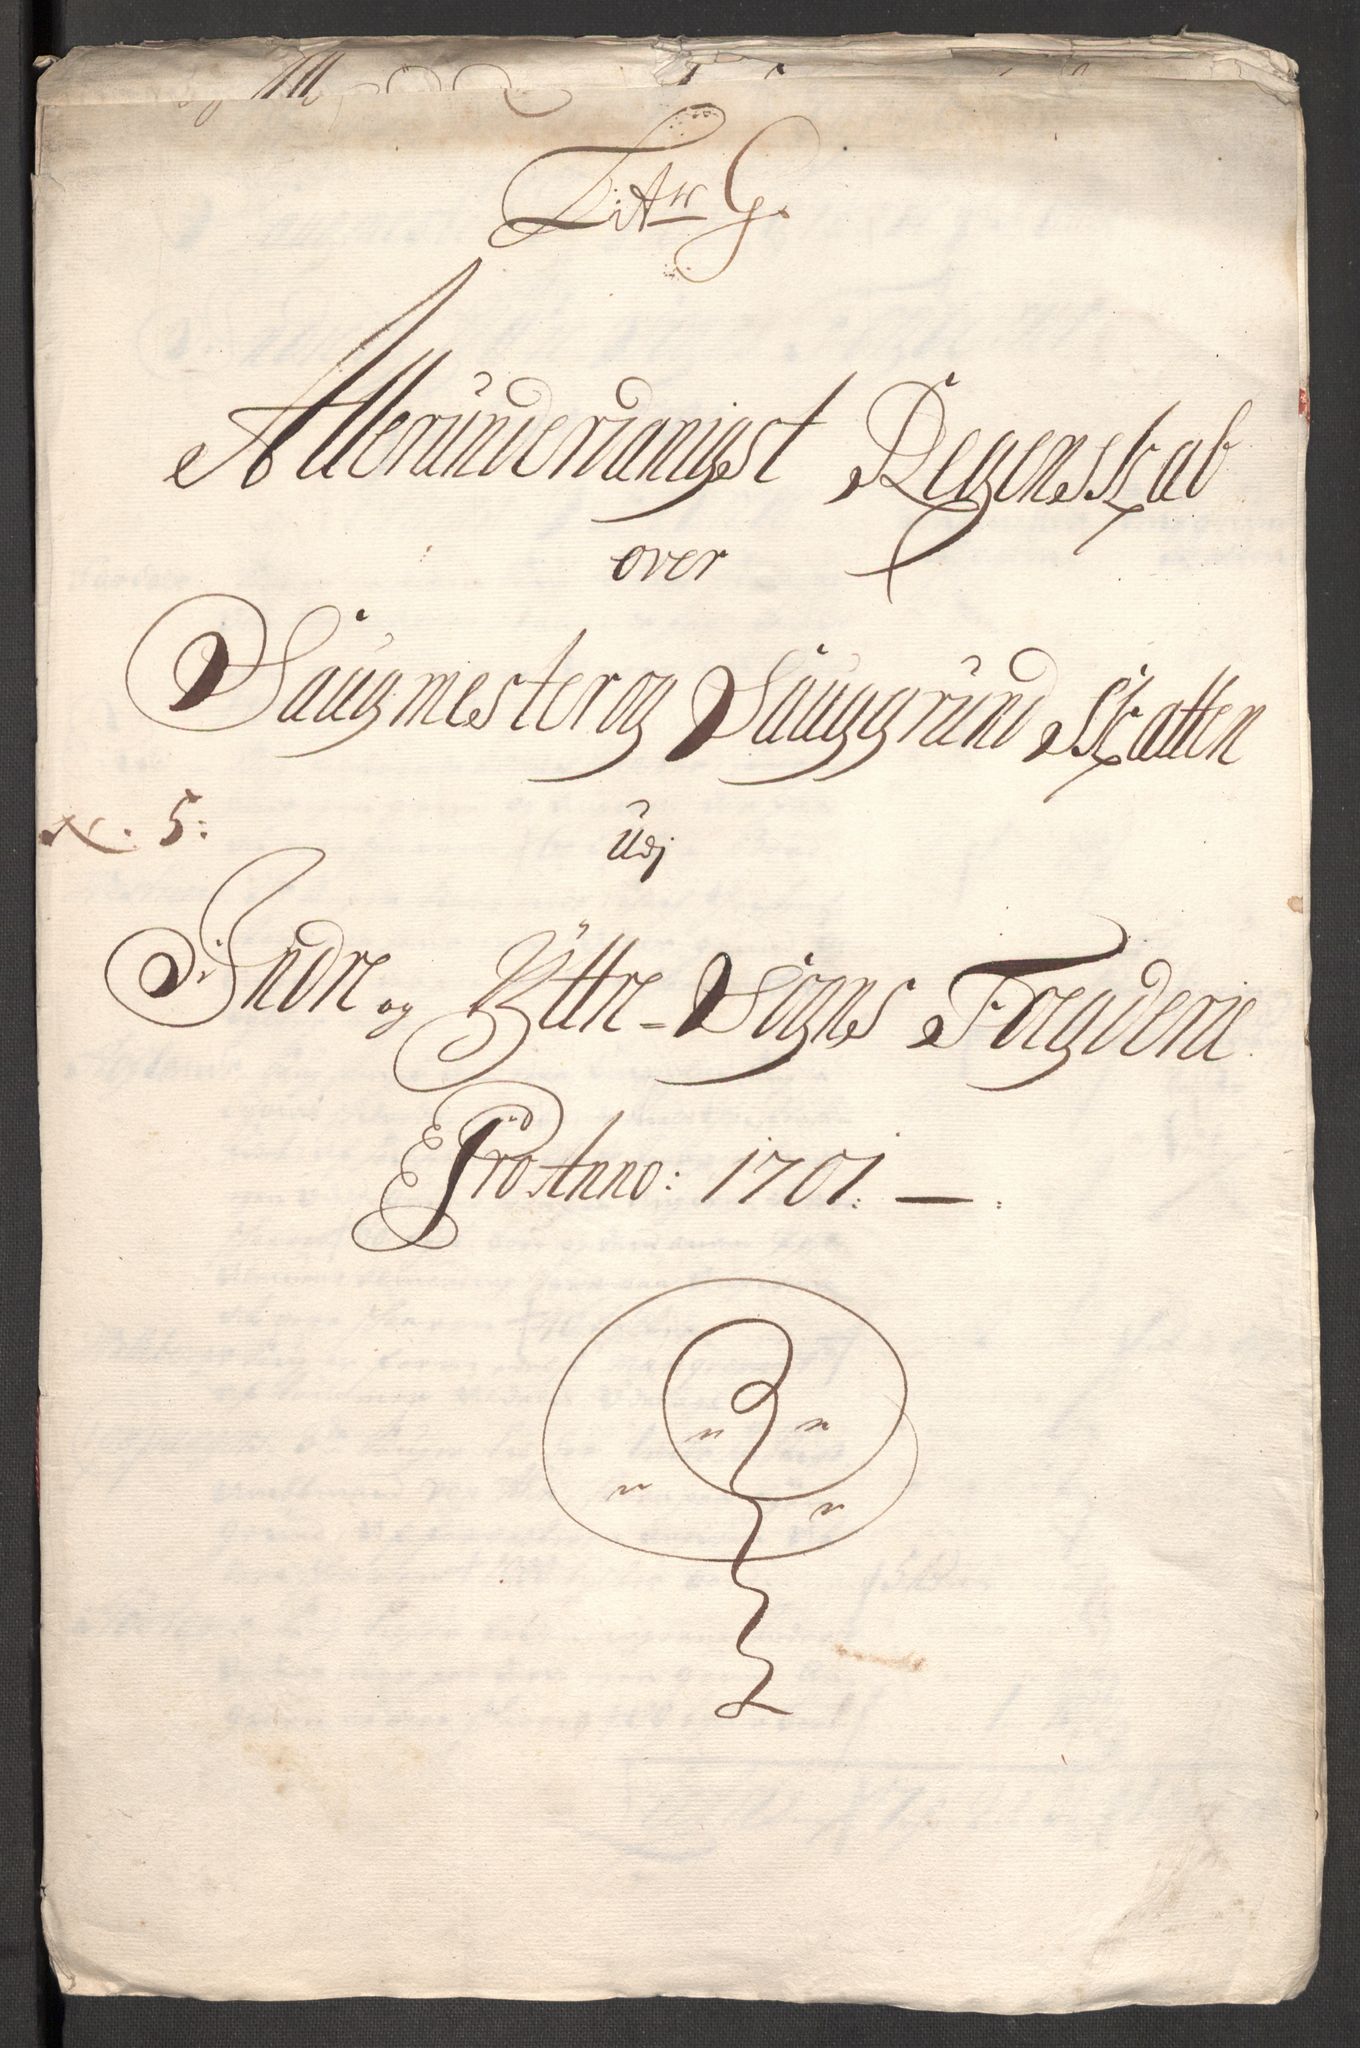 Litr G.
Alleründerdanigst Regenskab
over
Saugmester og Sauggrund Skatten
Udj
N. 5:
Indre og Ÿttre-Sogns Fogderie.
Pro Anno: 1701. —